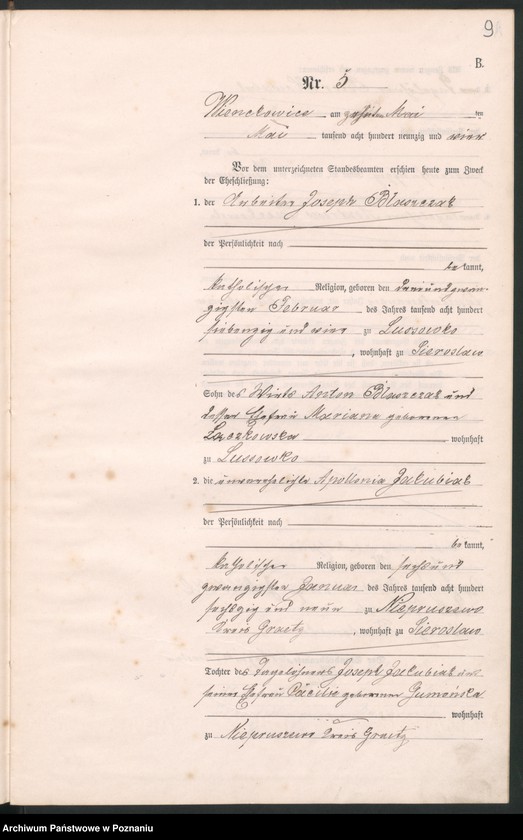 9
B.
Nr. 5
Wienckowice am zehnten Mai
Mai tausend acht hundert neunzig und vier
Vor dem unterzeichneten Standesbeamten erschien heute zum Zweck
der Eheschließung:
1. der Arbeiter Joseph Blaszczak
der Persönlichkeit nach
bekannt,
katholischer Religion, geboren den
zigsten Februar des Jahres tausend acht hundert
siebenzig und vier zu Lussowko
, wohnhaft zu Sieroslaw
Sohn des Wirts Anton Blaszczak und
dessen Ehefrau Mariana geborenen
Laczkowska wohnhaft
zu Lussowko
2. die unverehelichte Apollonia Jakubiak
der Persönlichkeit nach
bekannt,
katholischer Religion, geboren den sechsund
zwanzigsten Januar des Jahres tausend acht hundert
sechszig und neun zu Niepruszewo
Kreis Graetz, wohnhaft zu Sieroslaw
Tochter des Tagelöhners Joseph Jakubiak und
seiner Ehefrau geborenen
wohnhaft
zu Niepruszewo Kreis Graetz
Archiwum Państwowe w Poznaniu